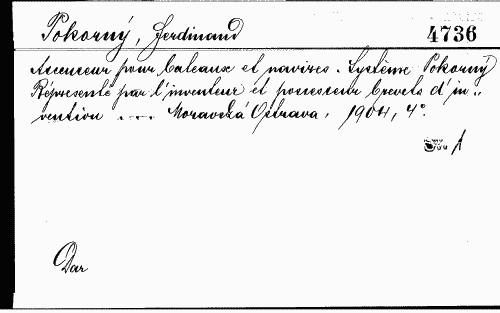 Pokorný, Ferdinand
4736
Ascenceur pour bateaux et navires. Système Pokorný
Répresenté par l'inventeur et possesseur brevets d'in-
vention .... Moravská Ostrava, 1904, 4°.
1
Dar